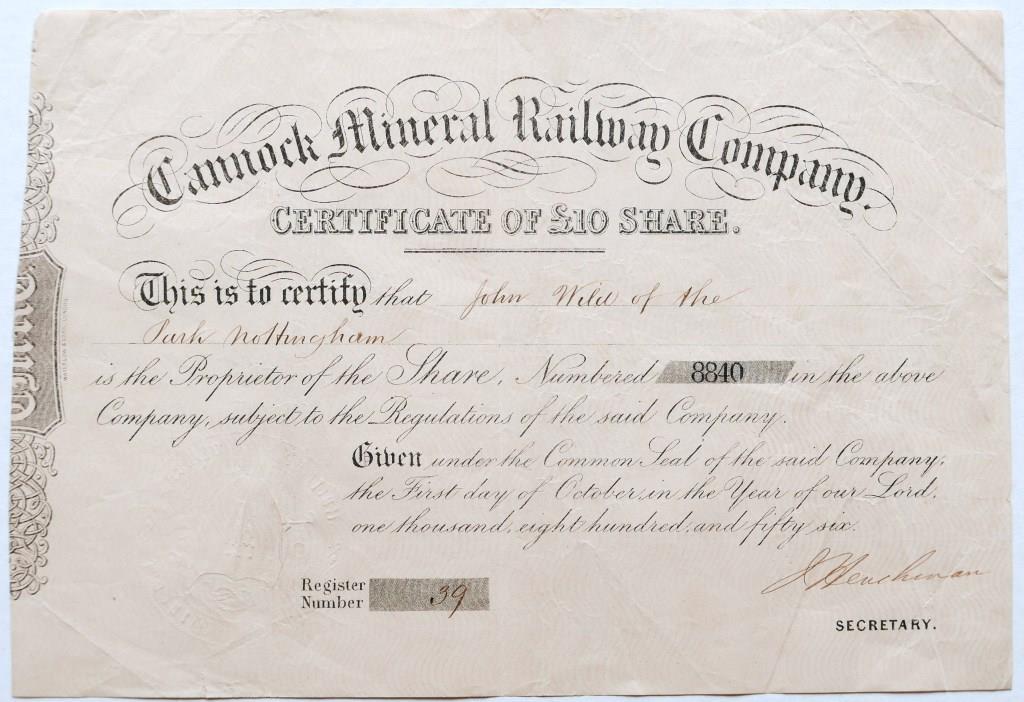 Cannock Mineral Railway Company.
CERTIFICATE OF £10 SHARE.
This is to certify that John Wild of the
Park Nottingham
is the Proprietor of the Share, Numbered 8840 in the above
Company, subject to the Regulations of the said Company.
Given under the Common Seal of the said Company,
the First day of October, in the Year of our Lord,
one thousand, eight hundred, and fifty six.
J Henchman
Register
Number 39
SECRETARY.